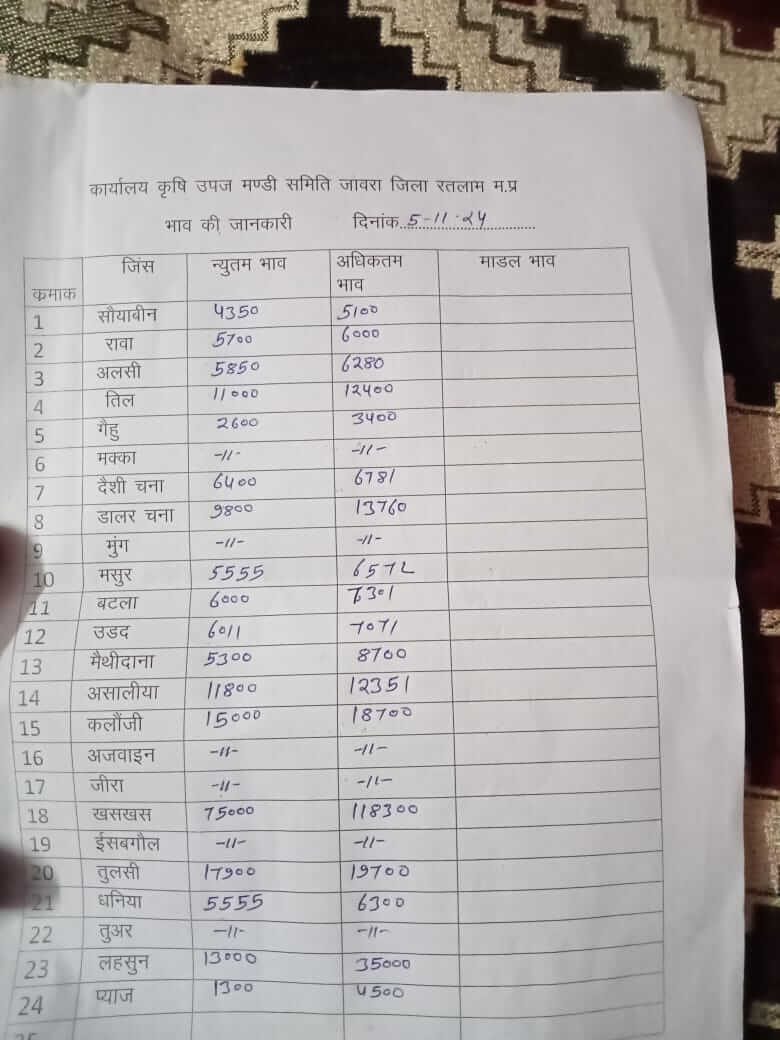 कार्यालय कृषि उपज मण्डी समिति जावरा जिला रतलाम म.प्र
भाव की जानकारी दिनांक 5-11-24
कमाक जिंस न्युतम भाव अधिकतम भाव माडल भाव
1 सौयाबीन 4350 5100
2 रावा 5700 6000
3 अलसी 5850 6280
4 तिल 11000 12400
5 गैहु 2600 3400
6 मक्का -11- -11-
7 दैशी चना 6400 6781
8 डालर चना 9800 13760
9 मुंग -11- -11-
10 मसुर 5555 6572
11 बटला 6000 7301
12 उडद 6011 7071
13 मैथीदाना 5300 8700
14 असालीया 11800 12351
15 कलौंजी 15000 18700
16 अजवाइन -11- -11-
17 जीरा -11- -11-
18 खसखस 75000 118300
19 ईसबगौल -11- -11-
20 तुलसी 17900 19700
21 धनिया 5555 6300
22 तुअर -11- -11-
23 लहसुन 13000 35000
24 प्याज 1300 4500